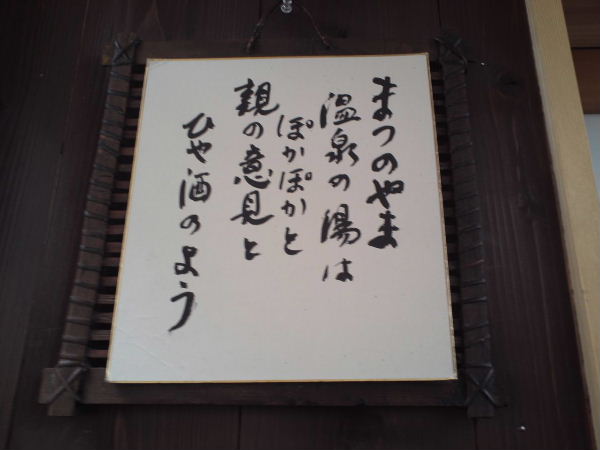 まつのやま
温泉の湯は
ぽかぽかと
親の意見と
ひや酒のよう